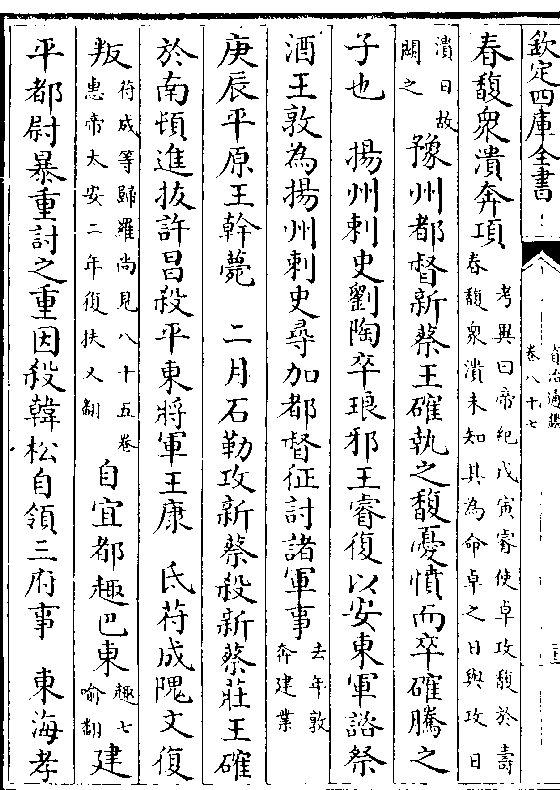 欽定四庫全書
資治通鑑
卷八十七
春馥衆潰奔項
考異曰帝紀戊寅睿使卓攻馥於壽
春馥衆潰未知其為命卓之日與攻日
潰日故
闕之
豫州都督新蔡王確執之馥憂憤而卒確騰之
子也　揚州刺史劉陶卒琅邪王睿復以安東軍諮祭
酒王敦為揚州刺史尋加都督征討諸軍事
去年敦
奔建業
庚辰平原王幹薨　二月石勒攻新蔡殺新蔡莊王確
於南頓進拔許昌殺平東將軍王康　氐苻成隗文復
叛
苻成等歸羅尚見八十五卷
惠帝太安二年復扶又翻
自宜都趣巴東
趣七
喻翻
建
平都尉暴重討之重因殺韓松自領三府事　東海孝